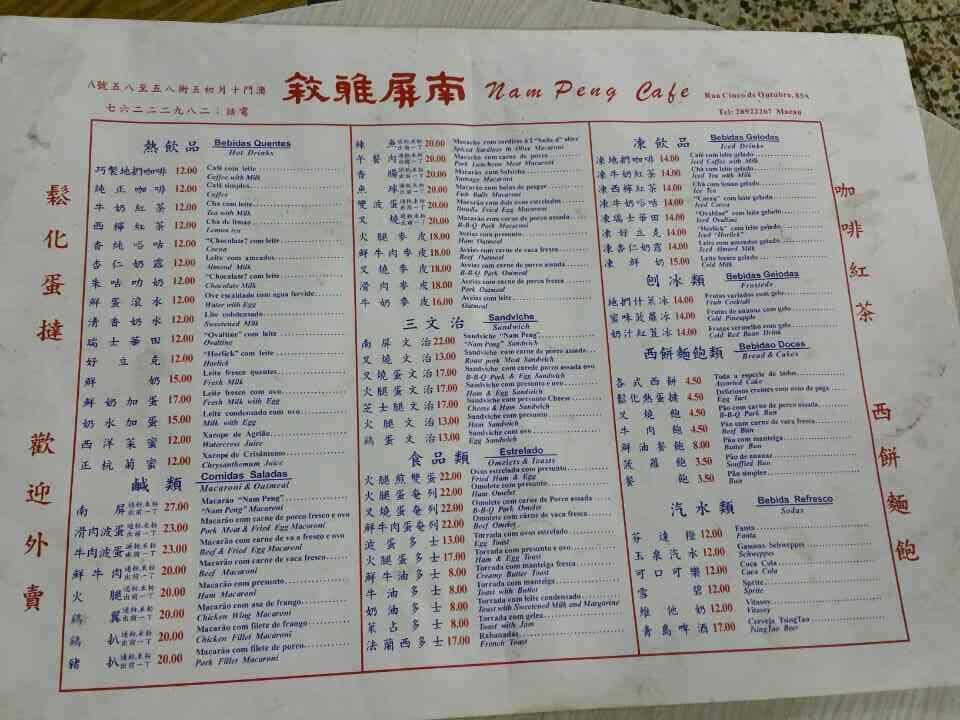 A號五八至五八街五初月十門澳
七六二二二九八二:話電
敘雅屏南
Nam Peng Cafe
Rua Cinco de Outubro, 85A
Tel: 28922267 Macau
鬆化蛋撻
歡迎外賣
熱飲品 Bebidas Quentes
Hot Drinks
巧製地捫咖啡 12.00 Café com leite
Coffee with Milk
純正咖啡 12.00 Café simples
Coffee
牛奶紅茶 12.00 Cha com leite
Tea with Milk
西檸紅茶 12.00 Cha de limao
Lemon tea
香純唂咕 12.00 "Chocolate? com leite
Cocoa
杏仁奶露 12.00 Leite com amendoa
Almond Milk
朱咕叻奶 12.00 "Chocolate? com leite
Chocolate Milk
鮮蛋滾水 12.00 Ovo escaltado com agua fervide
Water with Egg
清香奶水 12.00 Lite cobdensado
Sweetened Milk
瑞士華田 12.00 "Ovaltine" com leite
Ovaltine
好立克 12.00 "Horlick" com leite
Horlick
鮮奶 15.00 Leite fresco quentes
Fresh Milk
鮮奶加蛋 17.00 Leite fresco com ovo
Fresh Milk with Egg
奶水加蛋 15.00 Leite condensado com ovo
Milk with Egg
西洋菜蜜 12.00 Xarope de Agrião
Watercrest Juice
正杭菊蜜 12.00 Xarope de Crisântemo
Chrysanthemum Juice
鹹類 Comidas Saladas
Macaroni & Oatmeal
南屏 通粉米粉出前一丁 27.00 Macarão "Nam Peng"
"Nam Peng" Macaroni
滑肉波蛋 通粉米粉出前一丁 23.00 Macarão com carne de porco fresco e ovo
Pork Meat & Fried Egg Macaroni
牛肉波蛋 通粉米粉出前一丁 23.00 Macarão com carne de vaca e ovo
Beef & Fried Egg Macaroni
鮮牛肉 通粉米粉出前一丁 20.00 Macarão com carne de vaca fresco
Beef Macaroni
火腿 通粉米粉出前一丁 20.00 Macarão com presunto
Ham Macaroni
鷄翼 通粉米粉出前一丁 20.00 Macarão com asa de frango
Chicken Wing Macaroni
鷄扒 通粉米粉出前一丁 20.00 Macarão com filete de frango
Chicken Fillet Macaroni
豬扒 通粉米粉出前一丁 20.00 Macarão com filete de porco
Pork Fillet Macaroni
辣魚 通粉米粉出前一丁 20.00
Spiced Sardines in Olive Macaroni
午餐肉 通粉米粉出前一丁 20.00 Macarão com carne de porco
Pork Luncheon Meat Macaroni
香腸 通粉米粉出前一丁 20.00 Macarão com Salsicha
Sausage Macaroni
魚球 通粉米粉出前一丁 20.00 Macarão com bolas de peigar
Fish Balls Macaroni
雙波蛋 通粉米粉出前一丁 20.00 Macarão com dois ovos estrelados
Double Fried Egg Macaroni
叉燒 通粉米粉出前一丁 20.00 Macarão com carne de porco assada
B-B-Q Pork Macaroni
火腿麥皮 18.00 Aveias com presunto
Ham Oatmeal
鮮牛肉麥皮 18.00 Aveias com carne de vaca fresco
Beef Oatmeal
叉燒麥皮 18.00 Aveias com carne de porco assada
B-B-Q Pork Oatmeal
滑肉麥皮 18.00 Aveias com carne de porco
Pork Oatmeal
牛奶麥皮 16.00 Aveias com leite
Oatmeal
三文治 Sandviche
Sandwich
南屏文治 22.00 Sandviche "Nam Peng"
"Nam Peng" Sandwich
叉燒文治 13.00 Sandviche com carne de porco assada
Roast pork Meat Sandwich
叉燒蛋文治 17.00 Sandviche com carele porco assada ovo
B-B-Q Pork & Egg Sandwich
火腿蛋文治 17.00 Sandviche com presunto e ovo
Ham & Egg Sandwich
芝士腿文治 17.00 Sandviche com presunto Cheese
Cheese & Ham Sandwich
火腿文治 13.00 Sandviche com presunto
Ham Sandwich
鷄蛋文治 13.00 Sandviche com ovo
Egg Sandwich
食品類 Estrelado
Omelets & Toasts
火腿煎雙蛋 22.00 Ovos estrelado com presunto
Fried Ham & Egg
火腿蛋奄列 22.00 Omolete com presunto
Ham Omelet
叉燒蛋奄列 22.00 Omolete com carne de porco assada
B-B-Q Pork Omelet
鮮牛肉蛋奄列 22.00 Omolete com cárne de vaca fresco
Beef Omelet
波蛋多士 13.00 Torrada com ovo estrelado
Egg Toast
火腿蛋多士 17.00 Torrada com presunto e ovo
Ham & Egg Toast
鮮牛油多士 8.00 Torrada com manteiga fresco
Creamy Butter Toast
牛油多士 8.00 Torrada com manteiga
Toast with Butter
奶油多士 8.00 Torrada com leite condensado
Toast with Sweetened Milk and Margarine
茱古多士 8.00 Torrada com gelea
Toast with Jam
法蘭西多士 17.00 Rabanadas
French Toast
凍飲品 Bebidas Gelodas
Iced Drinks
凍地捫咖啡 14.00 Café com leite gelado
Iced Coffee with Milk
凍牛奶紅茶 14.00 Chá com leite gelado
Iced Tea with Milk
凍西檸紅茶 14.00 Chá com limao gelado
Ice Tea
凍牛奶唂咕 14.00 "Cocoa" com leite gelado
Iced Cocoa
凍瑞士華田 14.00 "Ovaltine" com leite gelado
Iced Ovaltine
凍好立克 14.00 "Horlick" com leite gelado
Iced "Horlick"
凍杏仁奶露 14.00 Leite com amendoa gelado
Iced Almond Milk
凍鮮奶 15.00 Leite fresco gelado
Cold Milk
刨冰類 Bebidas Gelodas
Frosteds
地捫什菓冰 14.00 Frutas variados com gelo
Fruit Cocktail
蜜味菠蘿冰 14.00 Frutas de ananas com gelo
Cold Pineapple
奶汁紅荳冰 14.00 Frutas vermelho com gelo
Cold Red Bean Drink
西餅麵飽類 Bebidao Doces
Bread & Cakes
各式西餅 4.50 Toda a especie de bolos
Assorted Cake
鬆化熱蛋撻 4.50 Delicioso cremes com ovo de paga
Egg Tart
叉燒飽 4.50 Pão com carne de porco assada
B-B-Q Pork Bun
牛肉飽 4.50 Pão com carne de vaca fresco
Beef Bun
鮮油餐飽 8.00 Pão com manteiga
Butter Bun
菠蘿飽 3.50 Pão de ananas
Souffled Bun
餐飽 3.50 Pão simples
Bun
汽水類 Bebida Refresco
Sodas
芬達橙 12.00 Fanta
Fanta
玉泉汽水 12.00 Gasosas Schweppes
Schweppes
可口可樂 12.00 Coca Cola
Coca Cola
雪碧 12.00 Sprite
Sprite
維他奶 12.00 Vitasoy
Vitasoy
青島啤酒 17.00 Cerveja TsingTao
NingTao Beer
咖啡紅茶
西餅麵飽